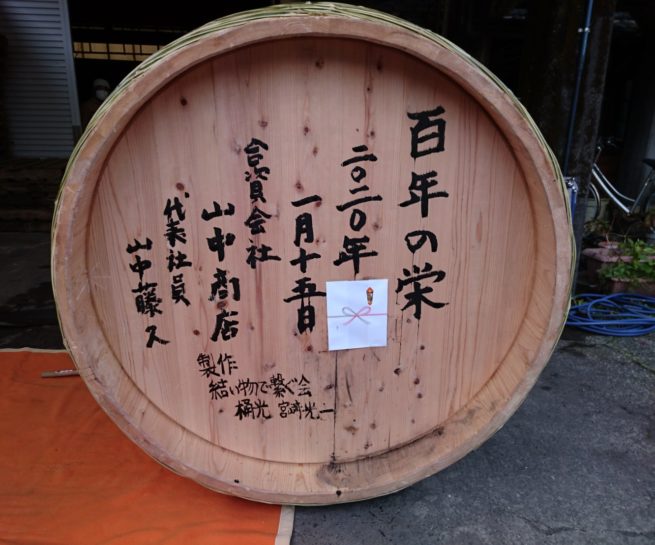 百年の栄
二〇二〇年
一月十五日
合資会社
山中商店
代表社員
山中藤久
製作
結い物で繋ぐ会
桶光 宮﨑光一